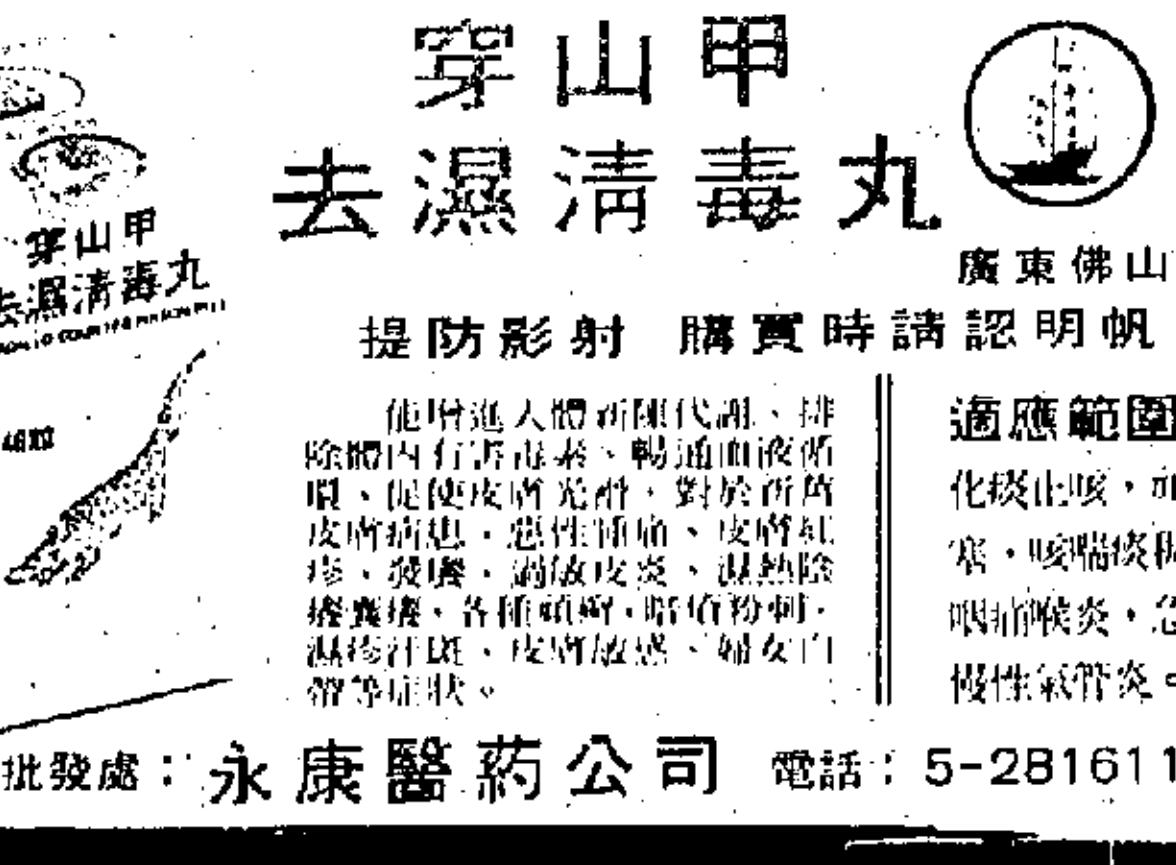 穿山甲
去濕清毒丸
穿山甲
去濕清毒丸
46粒
廣東佛山
提防影射 購買時請認明帆
能增進人體新陳代謝、排
除體內有害毒素、暢通血液循
環、促使皮膚光滑,對於所有
皮膚病患,惡性腫痛、皮膚紅
疹、發癢,過敏皮炎、濕熱除
各種頑癬,暗瘡粉刺,
濕疹汗斑、皮膚敏感、婦女白
帶等症狀。
適應範圍
化痰止咳,
塞,咳喘痰
咽痛喉炎,急
慢性氣管炎。
批發處:永康醫葯公司 電話:5-281611